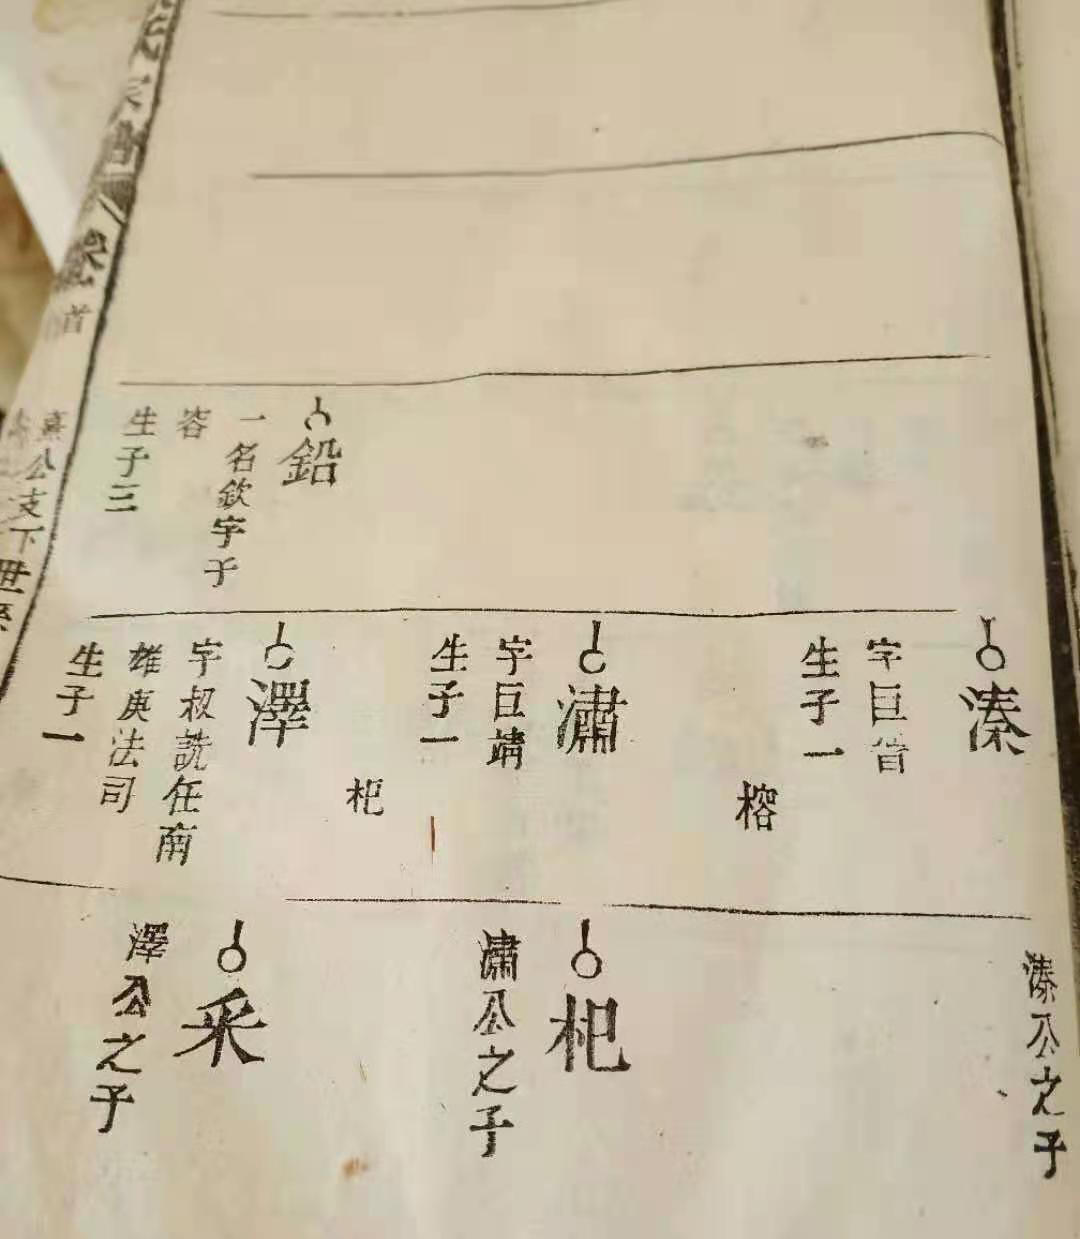 鉛
一名欽字子
容
生子三
溱
字巨音
生子一
榕
潚
字巨靖
生子一
杞
澤
字叔詵任南
雄庚法司
生子一
溱公之子
杞
潚公之子
采
澤公之子
首
公支下世系